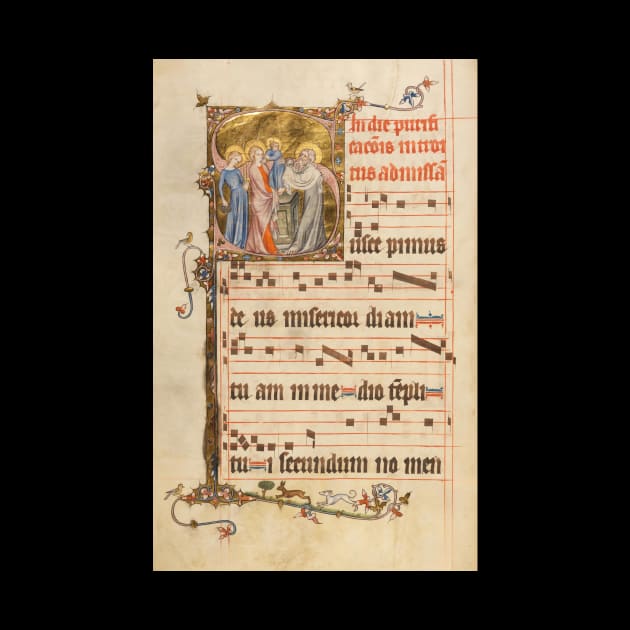 In die purifi
cacōis introi
tus ad missā
Suscepimus
de us misericor diam
tu am in me dio tēpli
tu i secundum no men